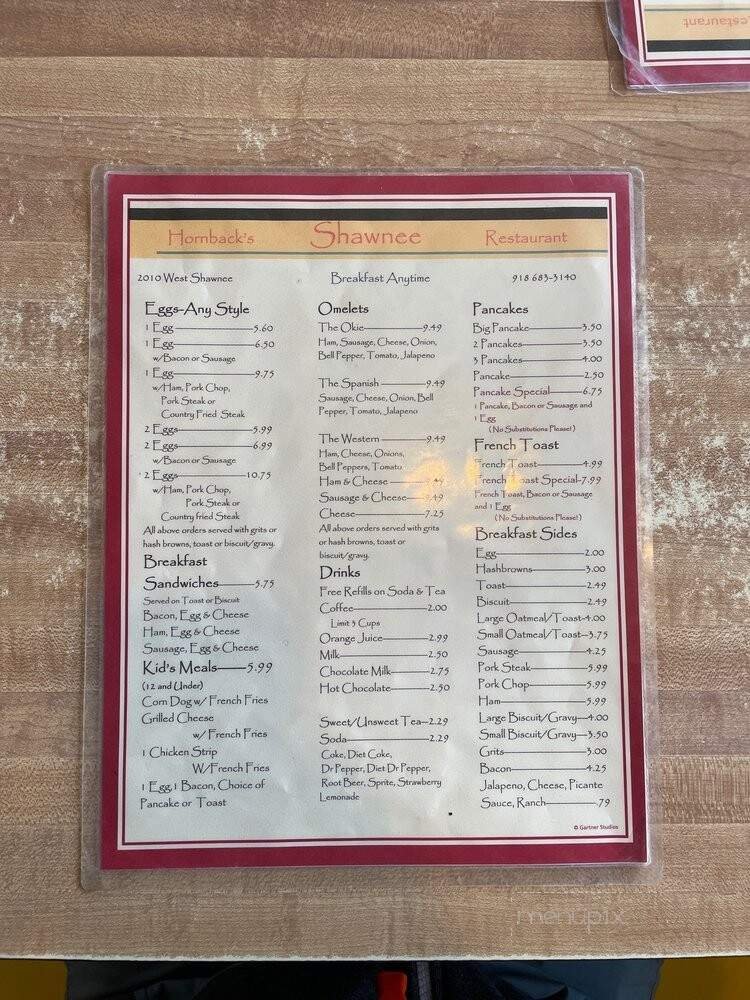 estaurant
Hornback's Shawnee Restaurant
2010 West Shawnee Breakfast Anytime 918 683-3140
Eggs-Any Style
1 Egg 5.60
1 Egg 6.50
w/Bacon or Sausage
1 Egg 9.75
w/Ham, Pork Chop,
Pork Steak or
Country Fried Steak
2 Eggs 5.99
2 Eggs 6.99
w/Bacon or Sausage
2 Eggs 10.75
w/Ham, Pork Chop,
Pork Steak or
Country fried Steak
All above orders served with grits or
hash browns, toast or biscuit/gravy.
Breakfast
Sandwiches 5.75
Served on Toast or Biscuit
Bacon, Egg & Cheese
Ham, Egg & Cheese
Sausage, Egg & Cheese
Kid's Meals 5.99
(12 and Under)
Corn Dog w/ French Fries
Grilled Cheese
w/ French Fries
1 Chicken Strip
W/French Fries
1 Egg,1 Bacon, Choice of
Pancake or Toast
Omelets
The Okie 9.49
Ham, Sausage, Cheese, Onion,
Bell Pepper, Tomato, Jalapeno
The Spanish 9.49
Sausage, Cheese, Onion, Bell
Pepper, Tomato, Jalapeno
The Western 9.49
Ham, Cheese, Onions,
Bell Peppers, Tomato
Ham & Cheese
Sausage & Cheese 9.49
Cheese 7.25
All above orders served with grits
or hash browns, toast or
biscuit/gravy.
Drinks
Free Refills on Soda & Tea
Coffee 2.00
Limit 3 Cups
Orange Juice 2.99
Milk 2.50
Chocolate Milk 2.75
Hot Chocolate 2.50
Sweet/Unsweet Tea 2.29
Soda 2.29
Coke, Diet Coke,
Dr Pepper, Diet Dr Pepper,
Root Beer, Sprite, Strawberry
Lemonade
Pancakes
Big Pancake 3.50
2 Pancakes 3.50
3 Pancakes 4.00
Pancake 2.50
Pancake Special 6.75
1 Pancake, Bacon or Sausage and
1 Egg
(No Substitutions Please!)
French Toast
French Toast 4.99
French Toast Special-7.99
French Toast, Bacon or Sausage
and 1 Egg
(No Substitutions Please!)
Breakfast Sides
Egg 2.00
Hashbrowns 3.00
Toast 2.49
Biscuit 2.49
Large Oatmeal/Toast-4.00
Small Oatmeal/Toast-3.75
Sausage 4.25
Pork Steak 5.99
Pork Chop 5.99
Ham 5.99
Large Biscuit/Gravy 4.00
Small Biscuit/Gravy 3.50
Grits 3.00
Bacon 4.25
Jalapeno, Cheese, Picante
Sauce, Ranch .79
© Gartner Studios
menupix